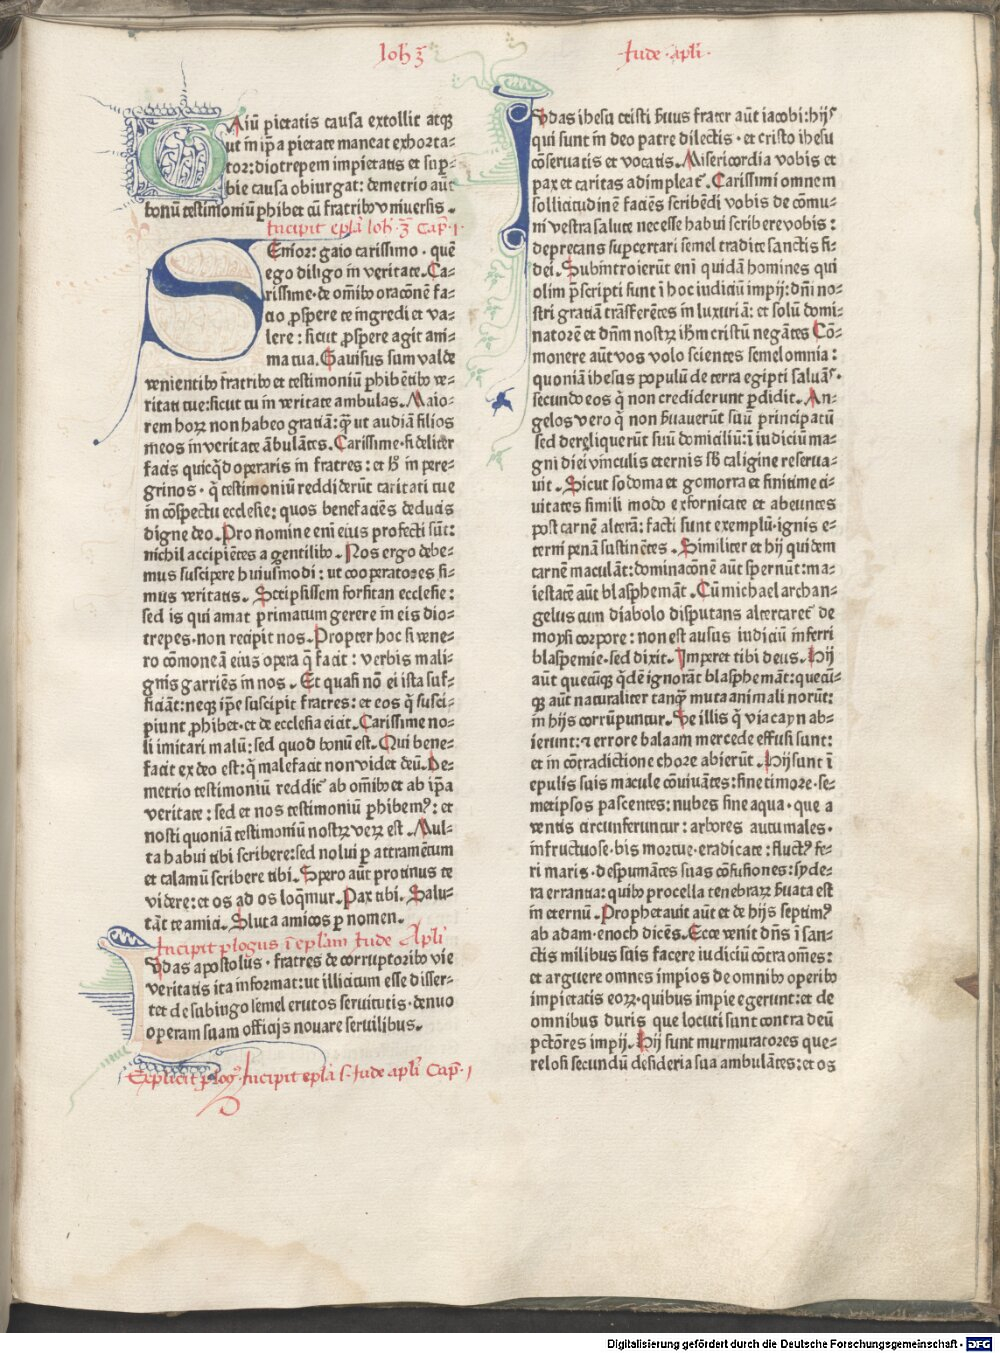 Ioh̄ ꝫ
Iude apl̄i
Gaiū pietatis causa extollit atqꝫ
ut in ip̄a pietate maneat exhorta⸗
tor: diotrepem impietatis et sup̱⸗
bie causa obiurgat: demetrio aūt
bonū testimoniū ꝑhibet cū fratribꝰ vniuersis.
Incipit epl̄a Ioh̄ ꝫ Cap̄ · I ·
Senior: gaio carissimo · quē
ego diligo in veritate. Ca⸗
rissime · de om̄ibꝰ orac̄onē fa⸗
cio ꝓspere te ingredi et va⸗
lere: sicut ꝓspere agit ani⸗
ma tua. Gauisus sum valde
venientibꝰ fratribꝰ et testimoniū ꝑhibētibꝰ ve⸗
ritati tue: sicut tu in veritate ambulas. Maio⸗
rem horꝝ non habeo gratiā: q̄ꝫ ut audiā filios
meos in veritate ābulātes. Carissime · fideliter
facis quicq̇d operaris in fratres: et h̄ in pere⸗
grinos · q̇ testimoniū reddiderūt caritati tue
in cōspectu ecclesie: quos benefaciēs deducis
digne deo. Pro nomine eni eius profecti sūt:
nichil accipiētes a gentilibꝰ. Nos ergo debe⸗
mus suscipere huiusmodi: ut cooperatores si⸗
mus veritatis. Scripsissem forsitan ecclesie:
sed is qui amat primatum gerere in eis dio⸗
trepes · non recipit nos. Propter hoc si vene⸗
ro cōmoneā eius opera q̄ facit: verbis mali⸗
gnis garriēs in nos. Et quasi nō ei ista suf⸗
ficiāt: neqꝫ ip̄e suscipit fratres: et eos q̇ susci⸗
piunt ꝓhibet · et de ecclesia eicit. Carissime no⸗
li imitari malū: sed quod bonū est. Qui bene⸗
facit ex deo est: q̇ malefacit non videt deū. De⸗
metrio testimoniū reddit̄ ab om̄ibꝰ et ab ip̄a
veritate: sed et nos testimoniū ꝑhibemꝰ: et
nosti quoniā testimoniū nostrꝝ verꝝ est. Mul⸗
ta habui tibi scribere: sed nolui ꝑ attramētum
et calamū scribere tibi. Spero aūt protinus te
videre: et os ad os loq̄mur. Pax tibi. Salu⸗
tāt te amici. Saluta amicos ꝑ nomen.
Incipit ꝓlogus ī epl̄am Iude Apl̄i
Iudas apostolus · fratres de corruptoribꝰ vie
veritatis ita informat: ut illicitum esse disser⸗
tet de subingo semel erutos seruitutis · denuo
operam suam officijs nouare seruilibus.
Explicit ꝓlogꝰ Incipit epl̄a s · Iude apl̄i Cap̄ · I
Iudas ihesu cristi ẜuus frater aūt iacobi: hijs
qui sunt in deo patre dilectis · et cristo ihesu
cōseruatis et vocatis. Misericordia vobis et
pax et caritas adimpleat̄. Carissimi omnem
sollicitudinē faciēs scribēdi vobis de cōmu⸗
ni vestra salute necesse habui scribere vobis:
deprecans sup̱certari semel tradite sanctis fi⸗
dei. Subintroierūt eni quidā homines qui
olim p̄scripti sunt ī hoc iudiciū impij: dn̄i no⸗
stri gratiā trāsferētes in luxuriā: et solū domi⸗
natorē et dn̄m nostrꝝ ih̄m cristū negātes Cō⸗
monere aūt vos volo scientes semel omnia:
quoniā ihesus populū de terra egipti saluās ·
secundo eos q̇ non crediderunt ꝑdidit. An⸗
gelos vero q̇ non ẜuauerūt suū principatū
sed dereliquerūt suū domiciliū: ī iudiciū ma⸗
gni diei vinculis eternis sb̄ caligine reserua⸗
uit. Sicut sodoma et gomorra et finitime ci⸗
uitates simili modo exfornicate et abeuntes
post carnē alterā: facti sunt exemplū · ignis e⸗
terni penā sustinētes. Similiter et hij quidem
carnē maculāt: dominac̄onē aūt spernūt: ma⸗
iestatē aūt blasphemāt. Cū michael archan⸗
gelus cum diabolo disputans altercaret̄ de
moysi corpore: non est ausus iudiciū inferri
blaspemie · sed dixit. Imperet tibi deus. Hij
aūt quecūqꝫ q̇dē ignorāt blasphemāt: quecū⸗
qꝫ aūt naturaliter tanqꝫ muta animali norūt:
in hijs corrūpuntur. Ve illis q̇ via cayn ab⸗
ierunt: ⁊ errore balaam mercede effusi sunt:
et in cōtradictione chore abierūt. Hij sunt ī
epulis suis macule cōuiuātes: sine timore · se⸗
metipsos pascentes: nubes sine aqua · que a
ventis circunferuntur: arbores autumales ·
infructuose · bis mortue · eradicate: fluctꝰ fe⸗
ri maris · despumātes suas cōfusiones: syde⸗
ra errantia: quibꝰ procella tenebrarꝝ ẜuata est
in eternū. Prophetauit aūt et de hijs septimꝰ
ab adam · enoch dicēs. Ecce venit dn̄s ī san⸗
ctis milibus suis facere iudiciū cōtra om̄es:
et arguere omnes impios de omnibꝰ operibꝰ
impietatis eorꝝ · quibus impie egerunt: et de
omnibus duris que locuti sunt contra deū
pctōres impij. Hij sunt murmuratores que⸗
relosi secundū desideria sua ambulātes: et os
Digitalisierung gefördert durch die Deutsche Forschungsgemeinschaft - DFG